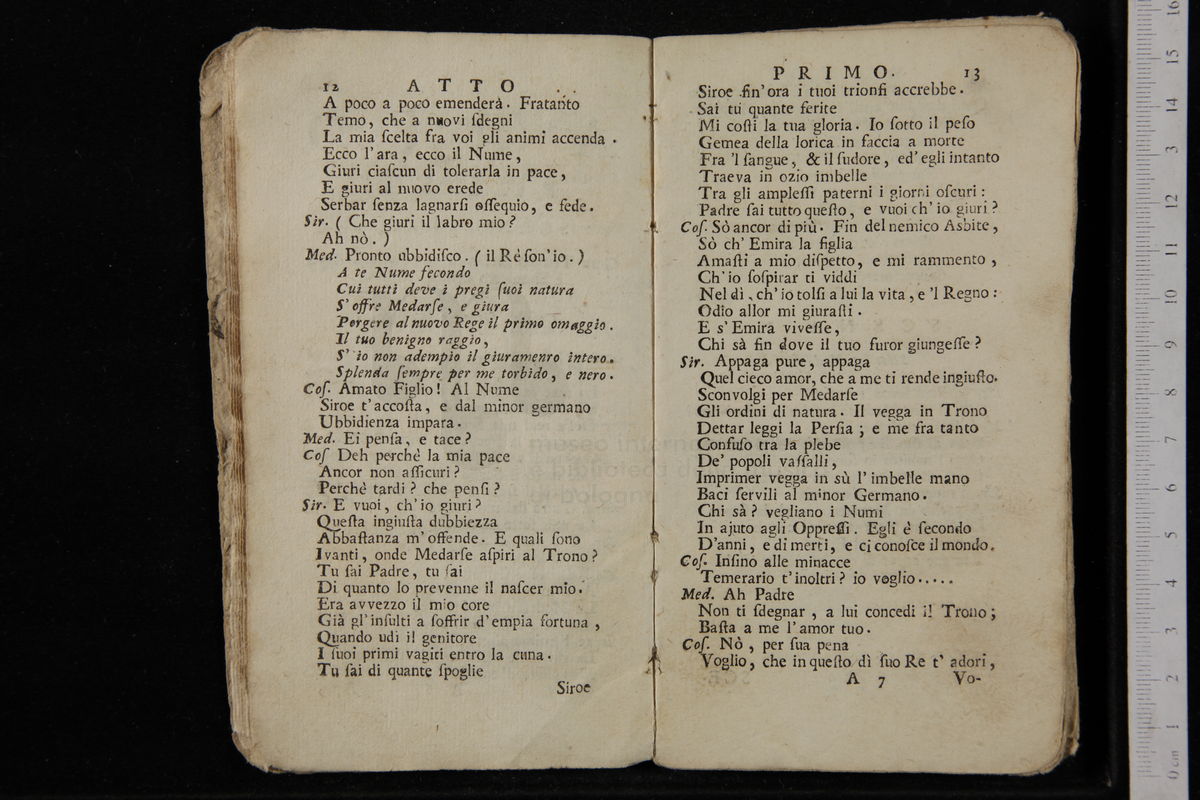 12 ATTO
A poco a poco emenderà. Fratanto
Temo, che a nuovi ſdegni
La mia ſcelta fra voi gli animi accenda.
Ecco l'ara, ecco il Nume,
Giuri ciaſcun di tolerarla in pace,
E giuri al nuovo erede
Serbar ſenza lagnarſi oſſequio, e fede.
Sir. (Che giuri il labro mio?
Ah nò.)
Med. Pronto ubbidiſco. (il Ré ſon'io.)
A te Nume fecondo
Cui tutti deve i pregi ſuoi natura
S'offre Medarſe, e giura
Porgere al nuovo Rege il primo omaggio.
Il tuo benigno raggio,
S'io non adempio il giuramenro intero.
Splenda ſempre per me torbido, e nero.
Coſ. Amato Figlio! Al Nume
Siroe t'accoſta, e dal minor germano
Ubbidienza impara.
Med. Ei penſa, e tace?
Coſ Deh perchè la mia pace
Ancor non aſſicuri?
Perchè tardi? che penſi?
Sir. E vuoi, ch'io giuri?
Queſta ingiuſta dubbiezza
Abbaſtanza m'offende. E quali ſono
I vanti, onde Medarſe aſpiri al Trono?
Tu ſai Padre, tu ſai
Di quanto lo prevenne il naſcer mio.
Era avvezzo il mio core
Già gl'inſulti a ſoffrir d'empia fortuna,
Quando udì il genitore
I ſuoi primi vagiti entro la cuna.
Tu ſai di quante ſpoglie
Siroe
PRIMO. 13
Siroe fin'ora i tuoi trionfi accrebbe.
Sai tu quante ferite
Mi coſti la tua gloria. Io ſotto il peſo
Gemea della lorica in faccia a morte
Fra 'l ſangue, & il ſudore, ed'egli intanto
Traeva in ozio imbelle
Tra gli ampleſſi paterni i giorni oſcuri:
Padre ſai tutto queſto, e vuoi ch'io giuri?
Coſ. Sò ancor di più. Fin del nemico Asbite,
Sò ch'Emira la figlia
Amaſti a mio diſpetto, e mi rammento,
Ch'io ſoſpirar ti viddi
Nel dì, ch'io tolſi a lui la vita, e 'l Regno:
Odio allor mi giuraſti.
E s'Emira viveſſe,
Chi sà fin dove il tuo furor giungeſſe?
Sir. Appaga pure, appaga
Quel cieco amor, che a me ti rende ingiuſto.
Sconvolgi per Medarſe
Gli ordini di natura. Il vegga in Trono
Dettar leggi la Perſia; e me fra tanto
Confuſo tra la plebe
De' popoli vaſſalli,
Imprimer vegga in sù l'imbelle mano
Baci ſervili al minor Germano.
Chi sà? vegliano i Numi
In ajuto agli Oppreſſi. Egli é ſecondo
D'anni, e di merti, e ci conoſce il mondo.
Coſ. Infino alle minacce
Temerario t'inoltri? io voglio.....
Med. Ah Padre
Non ti ſdegnar, a lui concedi il Trono;
Baſta a me l'amor tuo.
Coſ. Nò, per ſua pena
Voglio, che in queſto dì ſuo Re t'adori,
A 7 Vo-